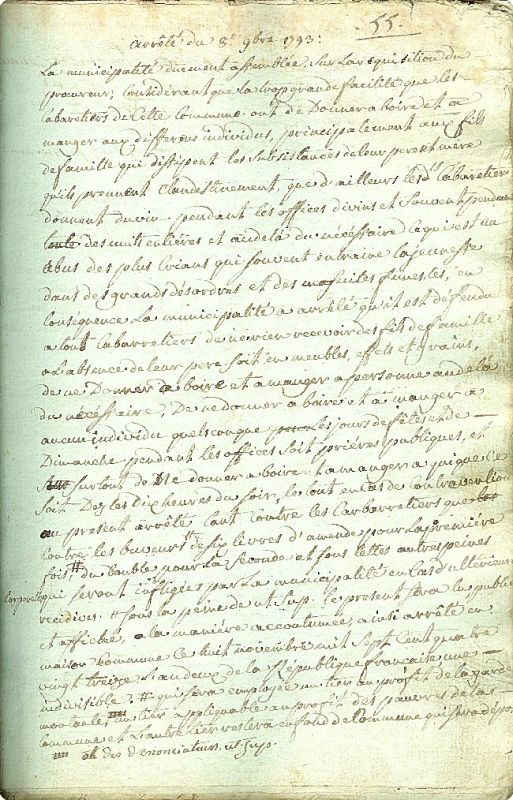 55.
arrêté du 8e 9bre 1793.
La municipalité duement assemblée, sur la requisition du
procureur; considérant que la trop grande facilité que les
Cabaretiers de Cette Commune ont de Donner a boire et a
manger aux differens individus, principalement aux fils
de famille qui dissipent les subsistances de leur pere et mere
qu'ils prennent Clandestinement, que d'ailleurs lesds Cabaretiers
donnent du vin pendant les offices divins et souvent pendant
des nuits entières et au delà du nécessaire ce qui est un
abus des plus Criants qui souvent entraine la jeunesse
dans des grands désordres et des funestes, en
Conséquence La municipalité a arrêté qu'il est défendu
a tout Cabarretiers de ne rien recevoir des fils de famille
a L'absence de leur pere soit en meubles, effets et grains,
de ne Donner a boire et a manger a personne au delà
du nécessaire, De ne donner a boire et a manger a
aucun individu quelsconque les jours de fêtes et de
Dimanche pendant les offices soit prières publiques, et
surtout de ne donner a boire et a manger a qui que ce
soit Des les dix heures du soir, le tout en cas de contravention
au présent arrêté tant contre les Carbarretiers que
contre les buveurs de six livres d'amende pour la première
fois, # du double pour La seconde et sous telles autres peines
Corporelles qui seront infligées par La municipalité en Cas d'ultérieures
recidives. # sous la peine de ut sup. le present sera lu publié
et affiché, a la manière accoutumée, ainsi arrêté en
maison Commune Ce huit novembre mil Sept Cent quatre
vingt treize L'an deux de la République française une
indivisible. # qui sera employée un tier au profit de la garde
montante un tier applicable au profit des pauvres de la
Commune et L'autre tier restera en fond de Commune qui sera dépo
ou des dénonciateurs, ut sup.